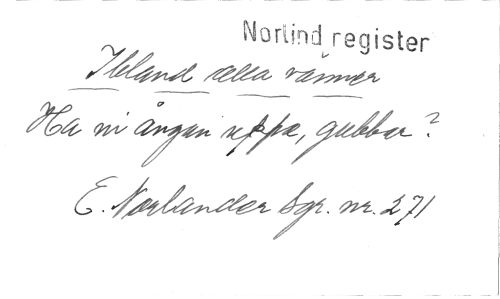 Norlind register
Ibland alla vänner
Ha ni ångan uppe, gubbar?
E. Norlander Sgr. nr. 271